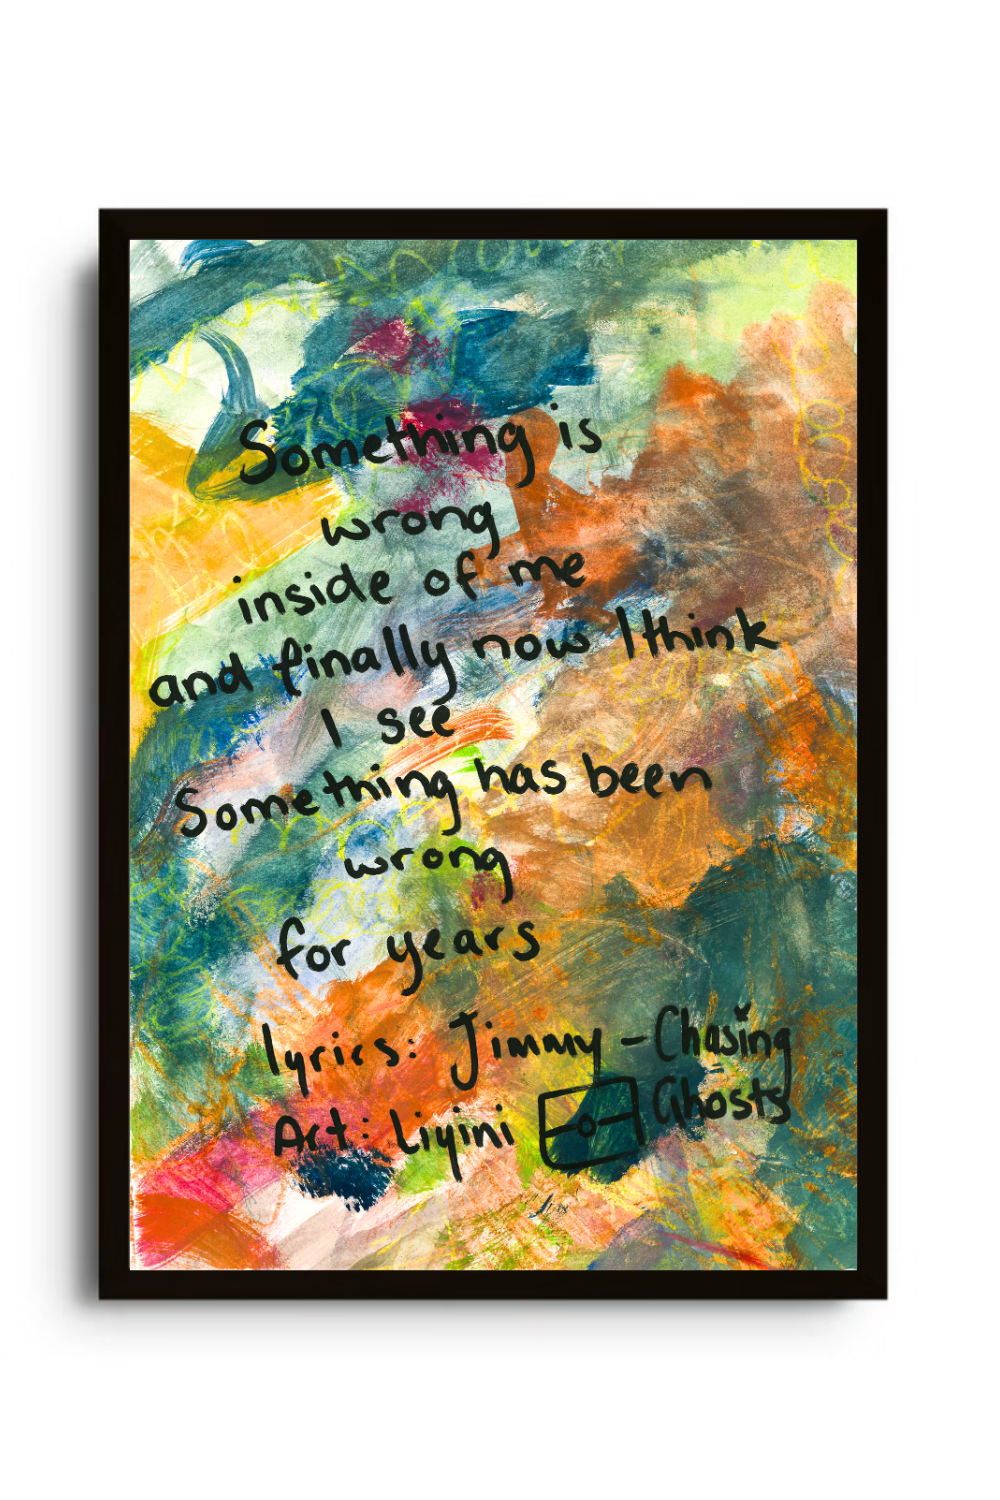 Something is
wrong
inside of me
and finally now I think
I see
Something has been
wrong
for years
lyrics: Jimmy - Chasing
Ghosts
Art: Liyini